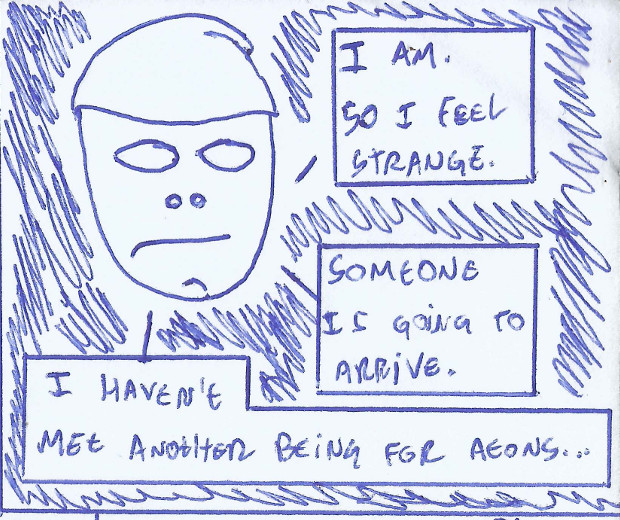 I AM.
SO I FEEL
STRANGE.
SOMEONE
IS GOING TO
ARRIVE.
I HAVEN'T
MET ANOTHER BEING FOR AEONS...